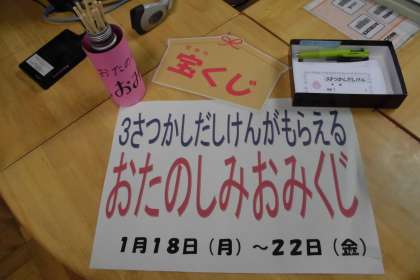 おたの
おみ
宝くじ
3さつかしだしけん
3さつかしだしけんがもらえる
おたのしみおみくじ
1月18日（月）～22日（金）